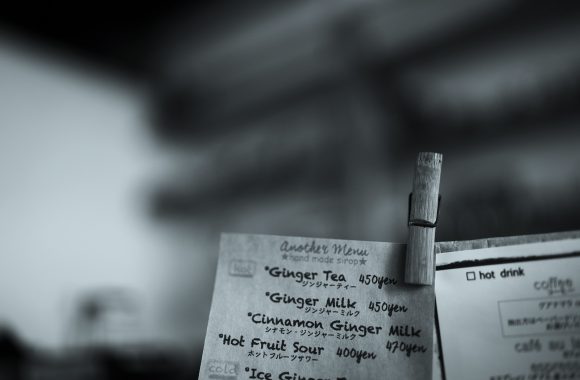 Another Menu
★hand made sirop★
hot
*Ginger Tea 450yen
ジンジャーティー
*Ginger Milk 450yen
ジンジャーミルク
*Cinnamon Ginger Milk
シナモン・ジンジャーミルク 470yen
*Hot Fruit Sour 400yen
ホットフルーツサワー
cold
*Ice Ginger
□ hot drink
coffee
café au
espresso